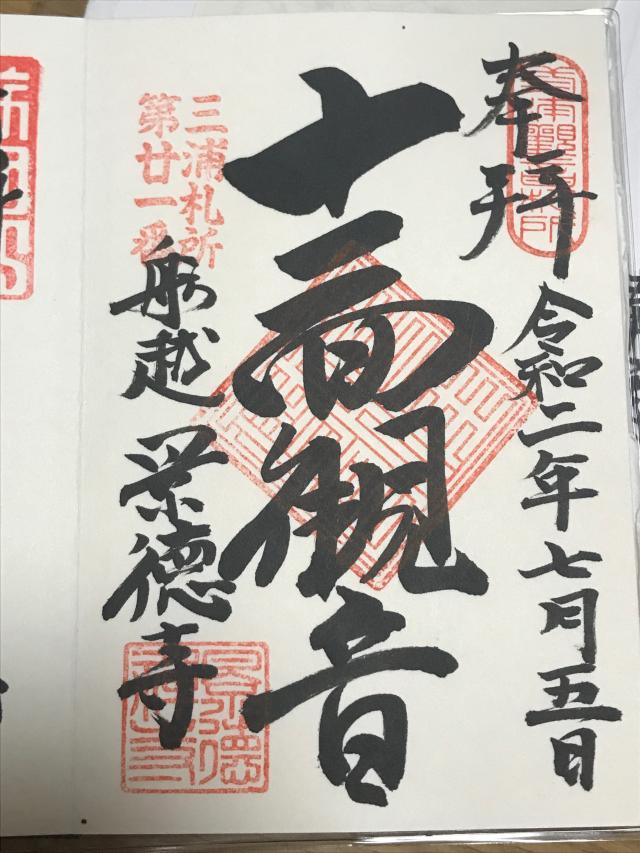 奉拝
令和二年七月五日
十一面観音
三浦札所
第廿一番
船越 景徳寺